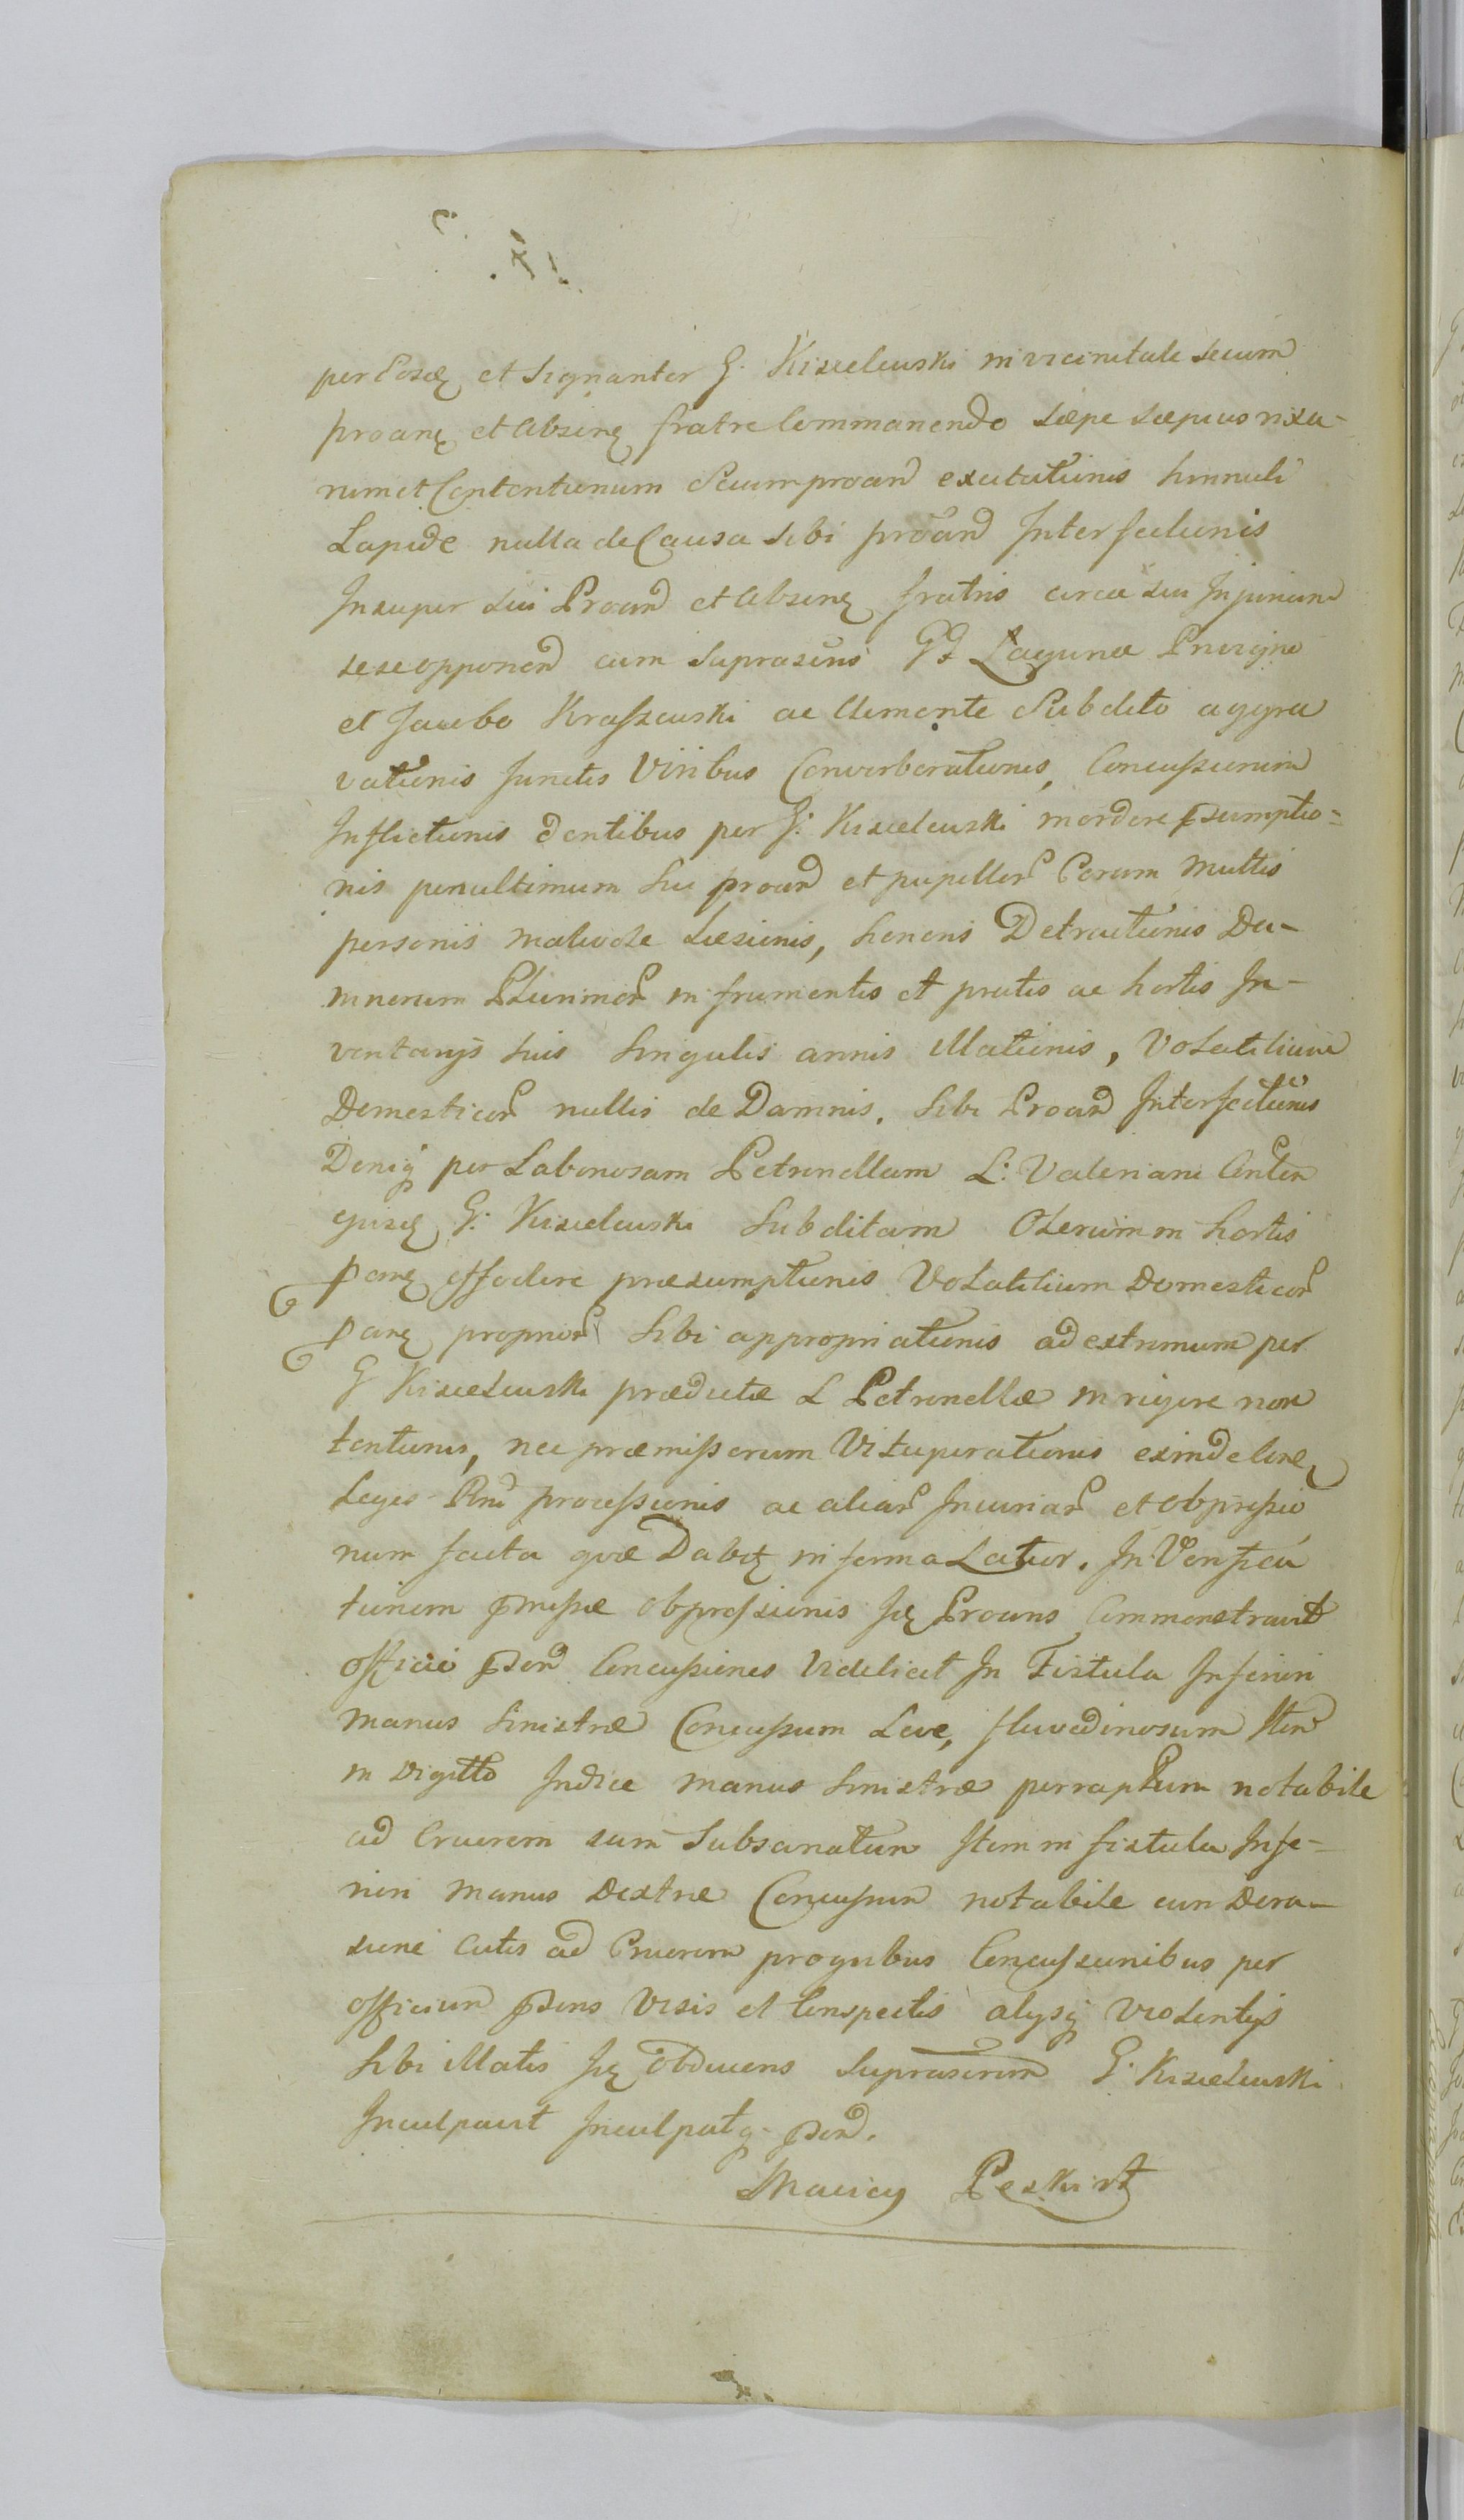 per Eosdē et Signanter G. Kisielewski in vicinitate secum
proanē et Absenē fratre Commanendo sæpe sæpius rixa-
rum et Contentionum Secum proand excitationis hinnuli
Lapide nulla de Causa sibi proand Interfectionis
Insuper sui Proand et Absenē fratris circa sua Injuriam
sese opponend cum suprascris Gd Laguna Privigno
et Jacobo Kraszewski ac Clemente Subdito aggra
vationis Junctis Viribus Converberationis, Concussionum
Inflictionis dentibus per G. Kisielewski mordere psumptio=
nis penultimum sui proand et pupillor Coram Multis
personis malivole Læsionis, honoris Detractionis Da-
mnorum Plurimor in frumentis et pratis ac hortis In-
ventarijs suis singulis annis Illationis, Volatilium
Domesticor nullis de Damnis, sibi Proand Interfectionis
Deniq per Laboriosam Petronellam L. Valeriani
ejusdē G. Kisielewski Subditam Olerum in hortis
effodere præsumptionis Volatilium Domesticor
proprior sibi appropriationis ad extremum per
G Kisielewski prædictæ L Petronellæ in rigore non
tentionis, nec præmissorum Vituperationis exinde
Legis processionis ac aliar Iniuriar et obpressio
num facta quæ Dabit in forma Latior. In Verifica
tionem pmissæ obpressionis Proans Commonstravit
officio psend Concussiones Videlicet In Fistula Inferiori
manus Sinistræ Concussum Leve, fluvedinosum Item
in Digitto Indice manus Sinistræ perraptum notabile
ad Cruorem iam Subsanatum Item in fistula Infe-
riori manus Dextræ Concussum notabile cum Dera-
sione Cutis ad Cruorem pro quibus Concussionibus per
officium psens Visis et Conspectis alijsq Violentijs
Sibi Illatis Obducens Suprascrium G. Kisielewski
Inculpavit Inculpatq psend.
Maciey